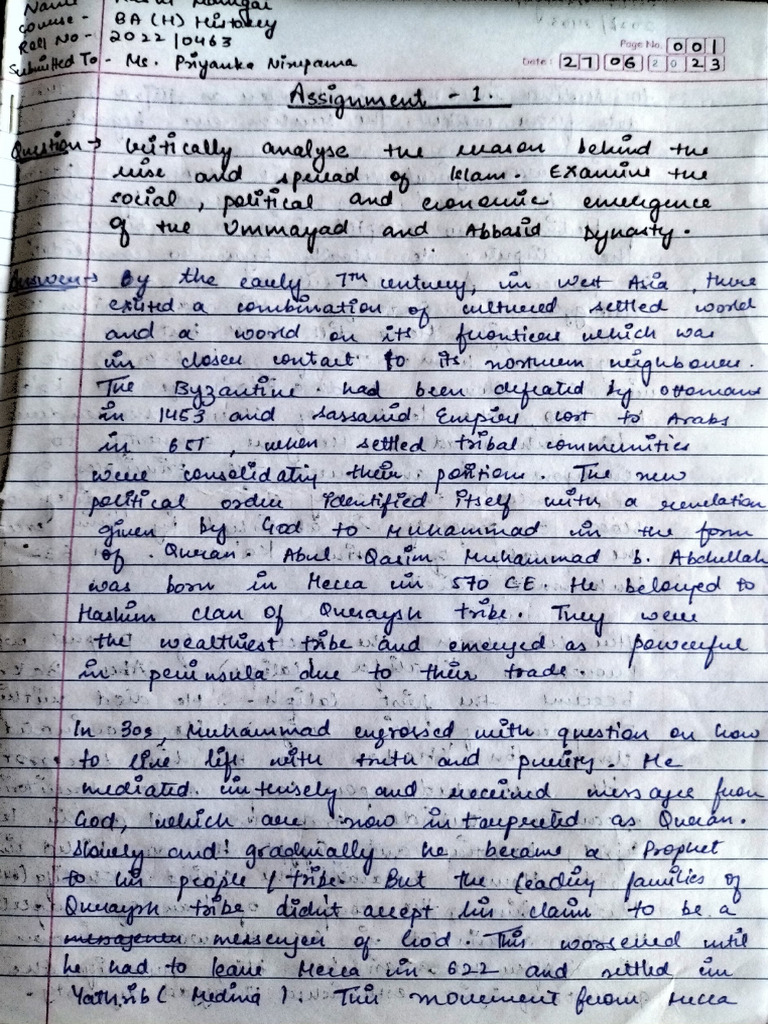 Name
Course - BA (H) History
Roll No - 2022/0463
Submitted To - Ms. Priyanka Nirupama
Page No. 001
Date: 27 06 2023
Assignment - 1.
Question → Critically analyse the reason behind the
rise and spread of Islam. Examine the
social, political and economic emergence
of the Ummayad and Abbasid Dynasty.
Answer → By the early 7th century, in West Asia, there
existed a combination of cultured settled world
and a world on its frontiers which was
in closer contact to its northern neighbours.
The Byzantine had been defeated by ottomans
in 1453 and Sassanid Empire lost to Arabs
in 651, when settled tribal communities
were consolidating their positions. The new
political order identified itself with a revelation
given by God to Muhammad in the form
of Quran. Abul Qasim Muhammad b. Abdullah
was born in Mecca in 570 CE. He belonged to
Hashim clan of Quraysh tribe. They were
the wealthiest tribe and emerged as powerful
in peninsula due to their trade.
In 30s, Muhammad engrossed with question on how
to live life with truth and purity. He
mediated intensely and received messages from
God, which are now interpreted as Quran.
Slowly and gradually he became a Prophet
to his people / tribe. But the leading families of
Quraysh tribe didn't accept his claim to be a
messenger of God. This worsened until
he had to leave Mecca in 622 and settled in
Yathrib (Medina). This movement from Mecca